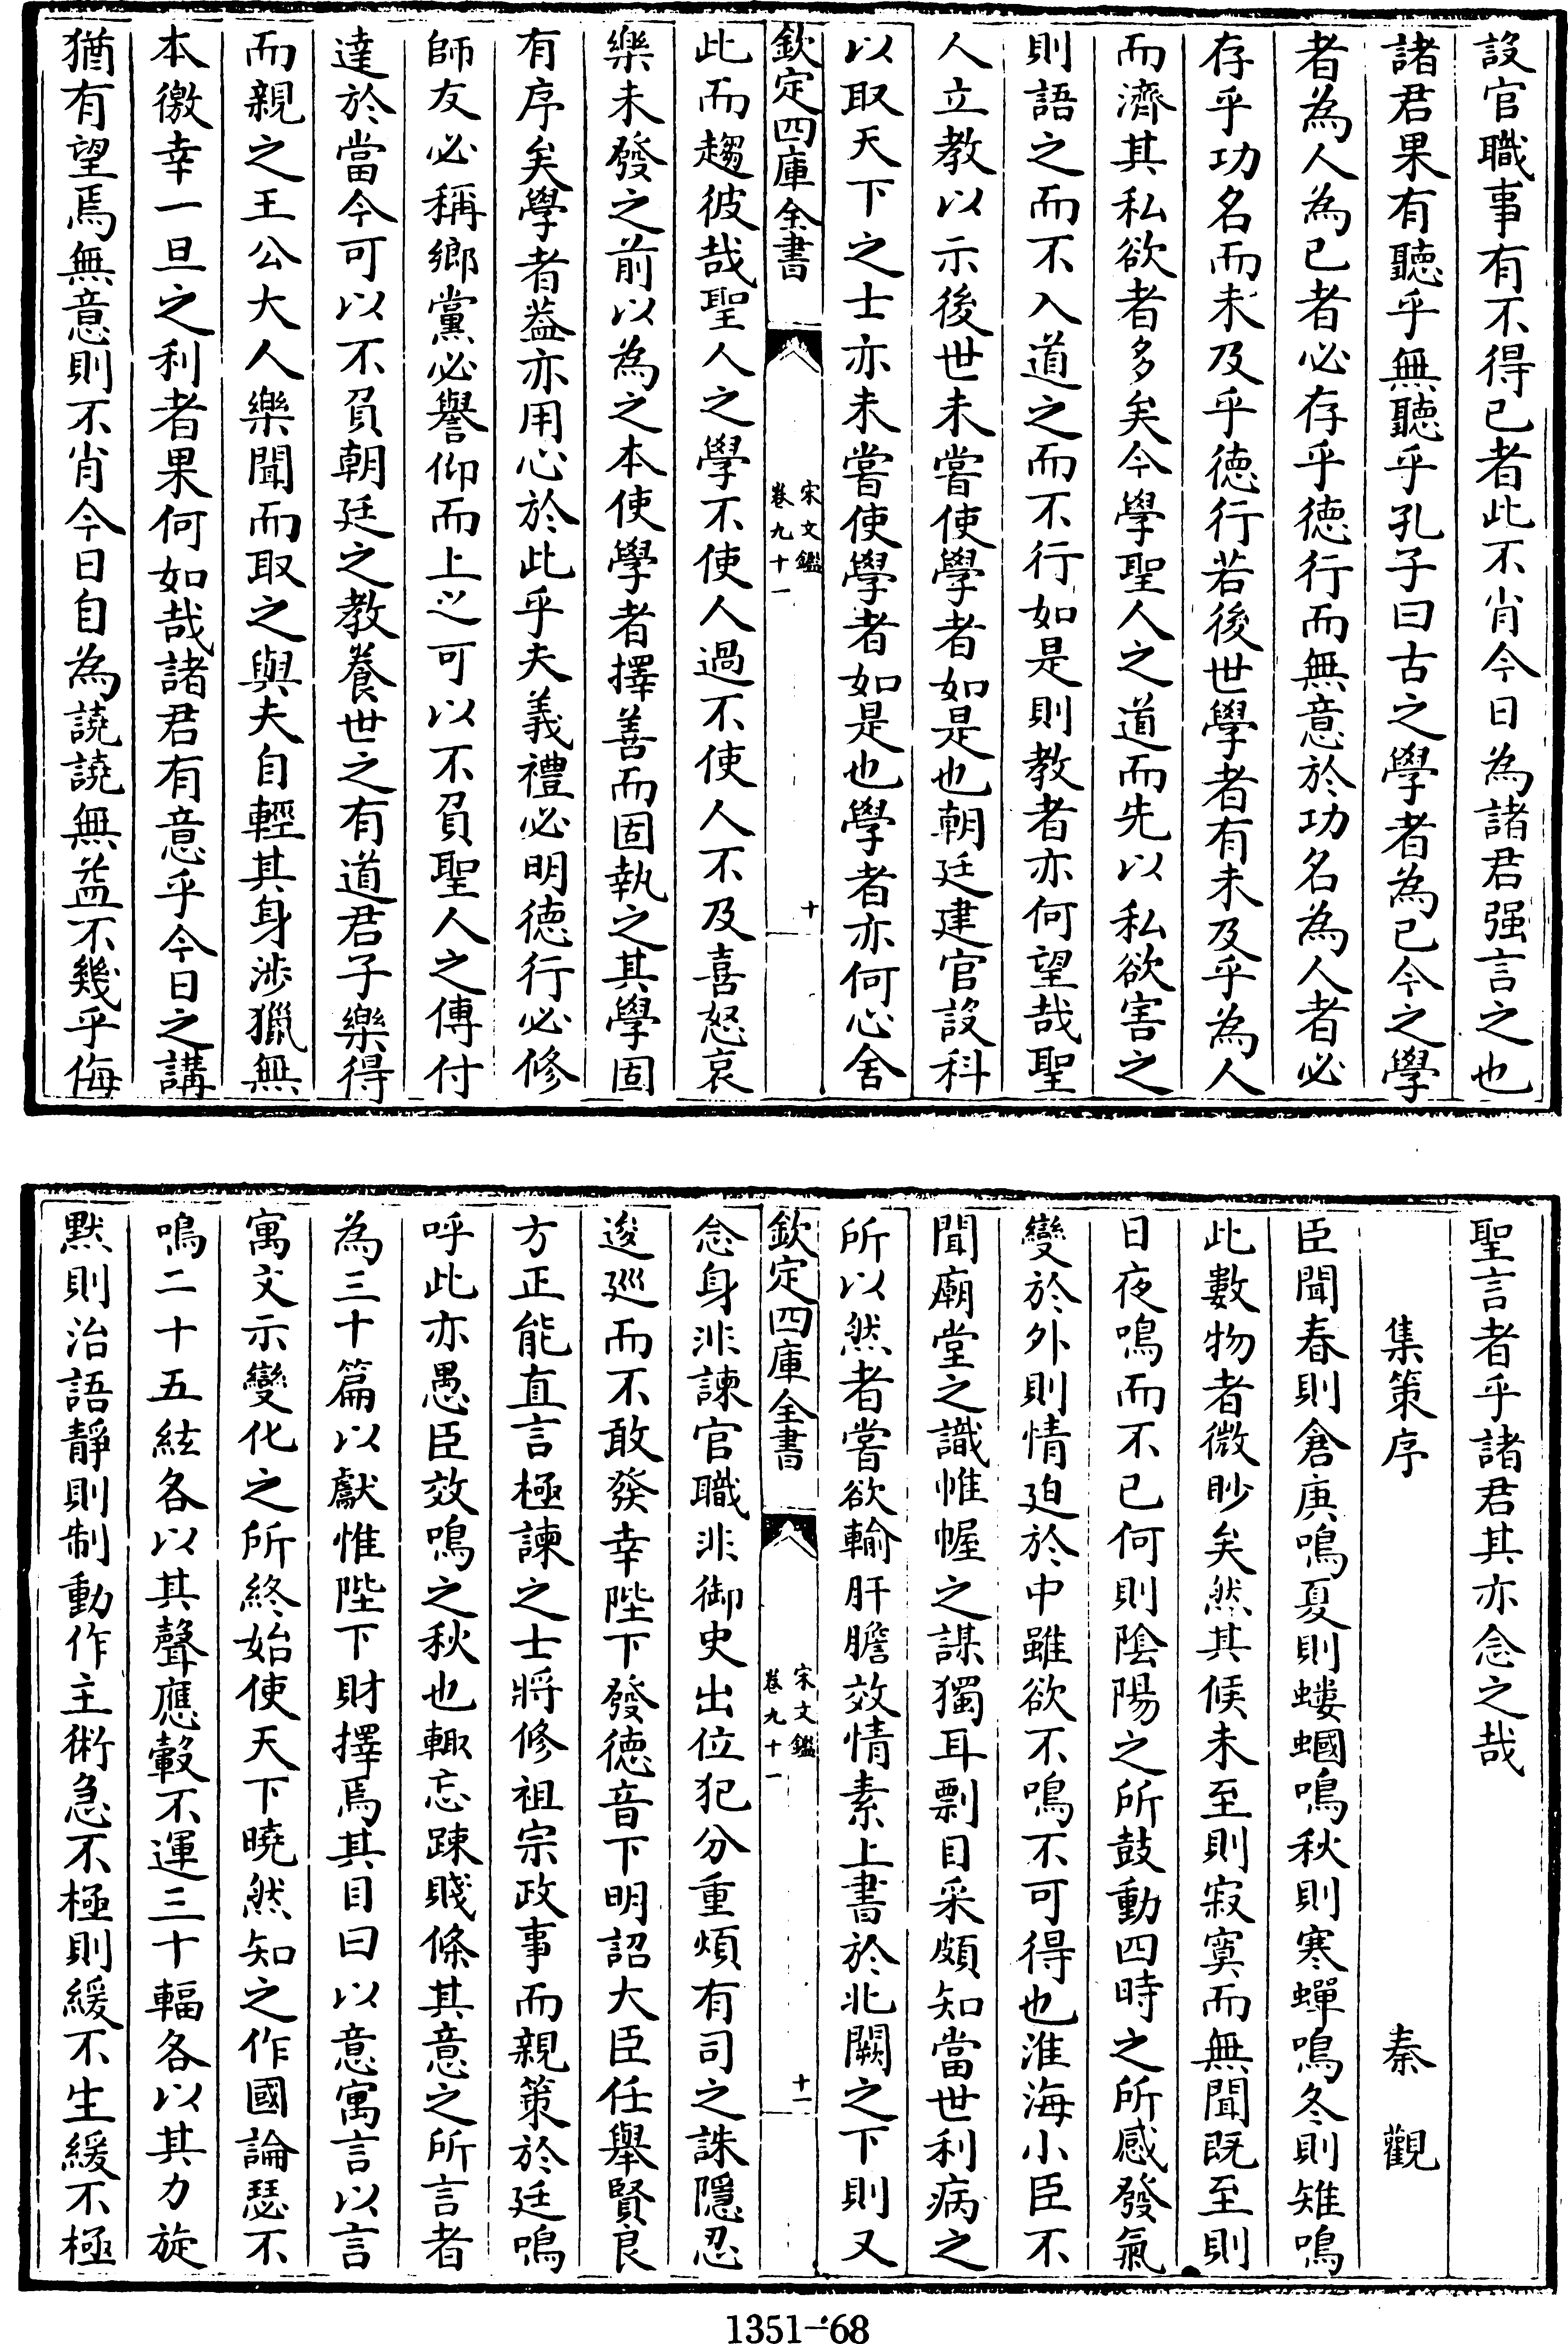 設官職事有不得已者此不肖今日為諸君强言之也
諸君果有聽乎無聽乎孔子曰古之學者為已今之學
者為人為已者必存乎徳行而無意於功名為人者必
存乎功名而未及乎徳行若後世學者有未及乎為人
而濟其私欲者多矣今學聖人之道而先以私欲害之
則語之而不入道之而不行如是則教者亦何望哉聖
人立教以示後世未嘗使學者如是也朝廷建官設科
以取天下之士亦未嘗使學者如是也學者亦何心舍
欽定四庫全書
宋文鑑
卷九十一
十
此而趨彼哉聖人之學不使人過不使人不及喜怒哀
樂未發之前以為之本使學者擇善而固執之其學固
有序矣學者葢亦用心於此乎夫義禮必明徳行必修
師友必稱鄉黨必譽仰而上之可以不負聖人之傳付
達於當今可以不負朝廷之教養世之有道君子樂得
而親之王公大人樂聞而取之與夫自輕其身渉獵無
本徼幸一旦之利者果何如哉諸君有意乎今日之講
猶有望焉無意則不肖今日自為譊譊無益不幾乎侮
聖言者乎諸君其亦念之哉
集策序 秦觀
臣聞春則倉庚鳴夏則螻蟈鳴秋則寒蟬鳴冬則雉鳴
此數物者微眇矣然其候未至則寂寞而無聞既至則
日夜鳴而不已何則陰陽之所鼓動四時之所感發氣
變於外則情廹於中雖欲不鳴不可得也淮海小臣不
聞廟堂之識惟幄之謀獨耳剽目采頗知當世利病之
所以然者嘗欲輸肝膽效情素上書於北闕之下則又
欽定四庫全書
宋文鑑
卷九十一
十一
念身非諫官職非御史出位犯分重煩有司之誅隱忍
逡廵而不敢發幸陛下發徳音下明詔大臣任舉賢良
方正能直言極諫之士將修祖宗政事而親策於廷嗚
呼此亦愚臣效鳴之秋也輙忘踈賤條其意之所言者
為三十篇以獻惟陛下財擇焉其目曰以意寓言以言
寓文示變化之所終始使天下曉然知之作國論瑟不
鳴二十五絃各以其聲應轂不運三十輻各以其力旋
默則治語靜則制動作主術急不極則緩不生緩不極
1351-68